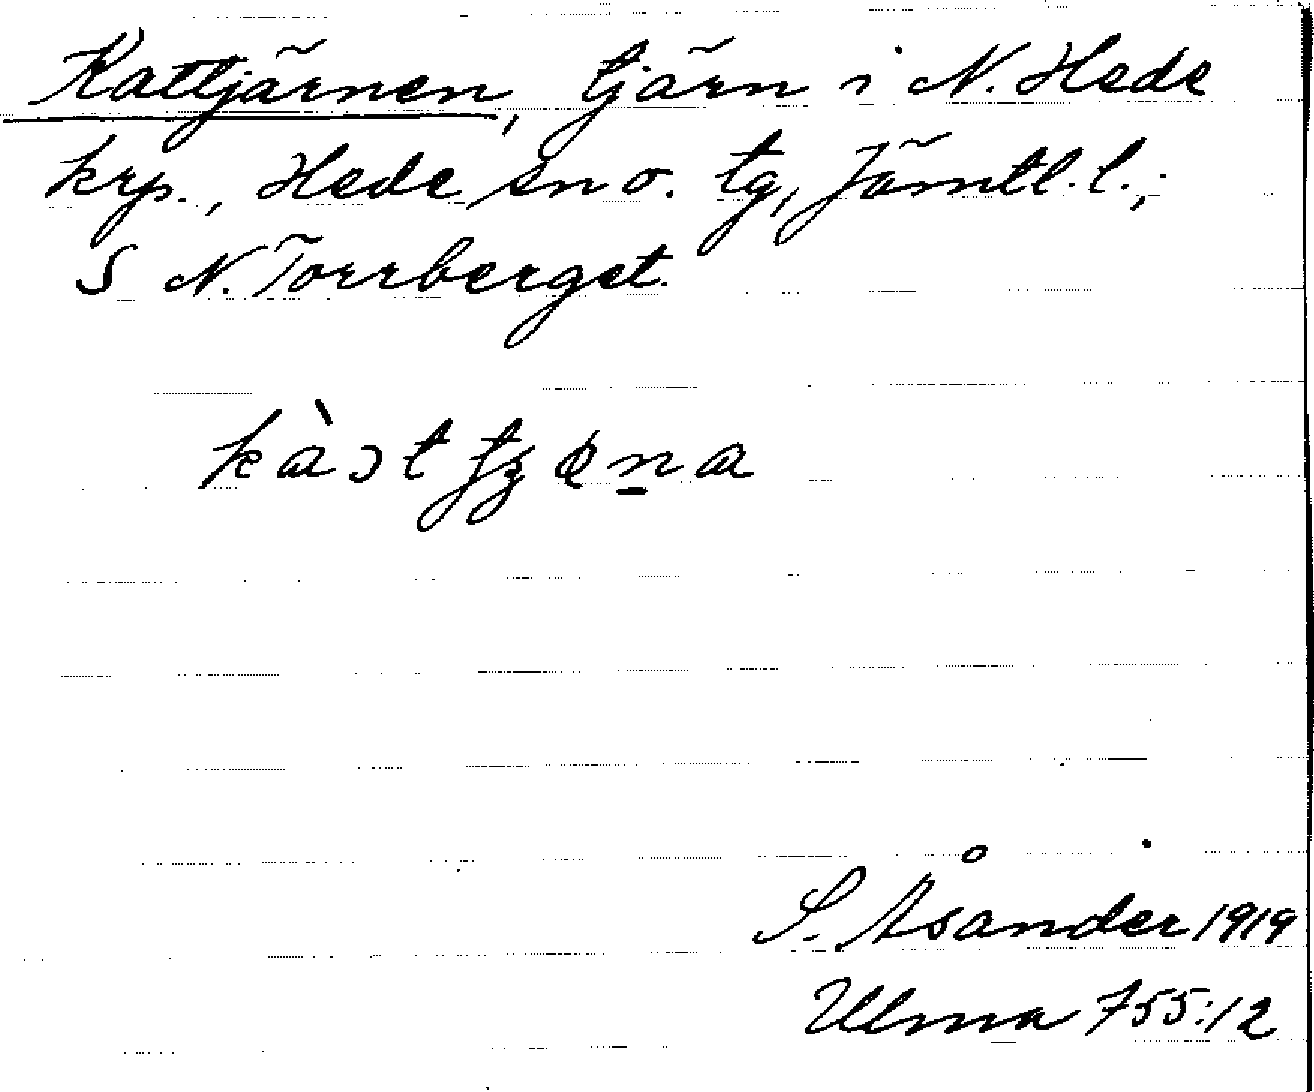 Kattjärnen, tjärn i N. Hede
krp., Hede sn o. tg, Jämtl. l.,
S N. Torrberget.
S. Åsander 1919
Ulma 755:12